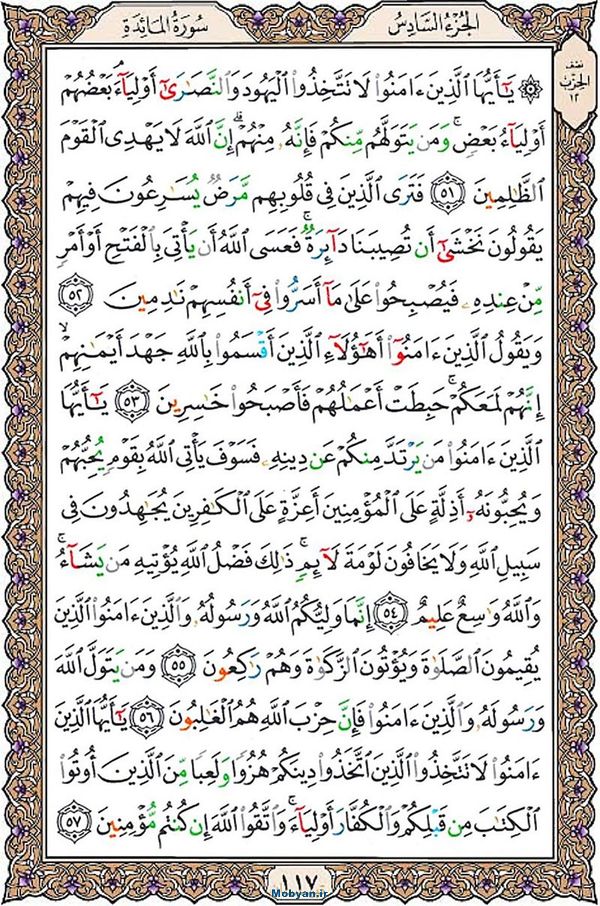 الجُزءُ السَّادِسُ
سُورَةُ المَائدَةِ
نصف
الحزب
١٢
۞ يَٰٓأَيُّهَا ٱلَّذِينَ ءَامَنُوا۟ لَا تَتَّخِذُوا۟ ٱلْيَهُودَ وَٱلنَّصَٰرَىٰٓ أَوْلِيَآءَ ۘ بَعْضُهُمْ
أَوْلِيَآءُ بَعْضٍ ۚ وَمَن يَتَوَلَّهُم مِّنكُمْ فَإِنَّهُۥ مِنْهُمْ ۗ إِنَّ ٱللَّهَ لَا يَهْدِى ٱلْقَوْمَ
ٱلظَّٰلِمِينَ ٥١ فَتَرَى ٱلَّذِينَ فِى قُلُوبِهِم مَّرَضٌ يُسَٰرِعُونَ فِيهِمْ
يَقُولُونَ نَخْشَىٰٓ أَن تُصِيبَنَا دَآئِرَةٌ ۚ فَعَسَى ٱللَّهُ أَن يَأْتِىَ بِٱلْفَتْحِ أَوْ أَمْرٍ
مِّنْ عِندِهِۦ فَيُصْبِحُوا۟ عَلَىٰ مَآ أَسَرُّوا۟ فِىٓ أَنفُسِهِمْ نَٰدِمِينَ ٥٢
وَيَقُولُ ٱلَّذِينَ ءَامَنُوٓا۟ أَهَٰٓؤُلَآءِ ٱلَّذِينَ أَقْسَمُوا۟ بِٱللَّهِ جَهْدَ أَيْمَٰنِهِمْ ۙ
إِنَّهُمْ لَمَعَكُمْ ۚ حَبِطَتْ أَعْمَٰلُهُمْ فَأَصْبَحُوا۟ خَٰسِرِينَ ٥٣ يَٰٓأَيُّهَا
ٱلَّذِينَ ءَامَنُوا۟ مَن يَرْتَدَّ مِنكُمْ عَن دِينِهِۦ فَسَوْفَ يَأْتِى ٱللَّهُ بِقَوْمٍ يُحِبُّهُمْ
وَيُحِبُّونَهُۥٓ أَذِلَّةٍ عَلَى ٱلْمُؤْمِنِينَ أَعِزَّةٍ عَلَى ٱلْكَٰفِرِينَ يُجَٰهِدُونَ فِى
سَبِيلِ ٱللَّهِ وَلَا يَخَافُونَ لَوْمَةَ لَآئِمٍ ۚ ذَٰلِكَ فَضْلُ ٱللَّهِ يُؤْتِيهِ مَن يَشَآءُ ۚ
وَٱللَّهُ وَٰسِعٌ عَلِيمٌ ٥٤ إِنَّمَا وَلِيُّكُمُ ٱللَّهُ وَرَسُولُهُۥ وَٱلَّذِينَ ءَامَنُوا۟ ٱلَّذِينَ
يُقِيمُونَ ٱلصَّلَوٰةَ وَيُؤْتُونَ ٱلزَّكَوٰةَ وَهُمْ رَٰكِعُونَ ٥٥ وَمَن يَتَوَلَّ ٱللَّهَ
وَرَسُولَهُۥ وَٱلَّذِينَ ءَامَنُوا۟ فَإِنَّ حِزْبَ ٱللَّهِ هُمُ ٱلْغَٰلِبُونَ ٥٦ يَٰٓأَيُّهَا ٱلَّذِينَ
ءَامَنُوا۟ لَا تَتَّخِذُوا۟ ٱلَّذِينَ ٱتَّخَذُوا۟ دِينَكُمْ هُزُوًا وَلَعِبًا مِّنَ ٱلَّذِينَ أُوتُوا۟
ٱلْكِتَٰبَ مِن قَبْلِكُمْ وَٱلْكُفَّارَ أَوْلِيَآءَ ۚ وَٱتَّقُوا۟ ٱللَّهَ إِن كُنتُم مُّؤْمِنِينَ ٥٧
١١٧
Mobyan.ir